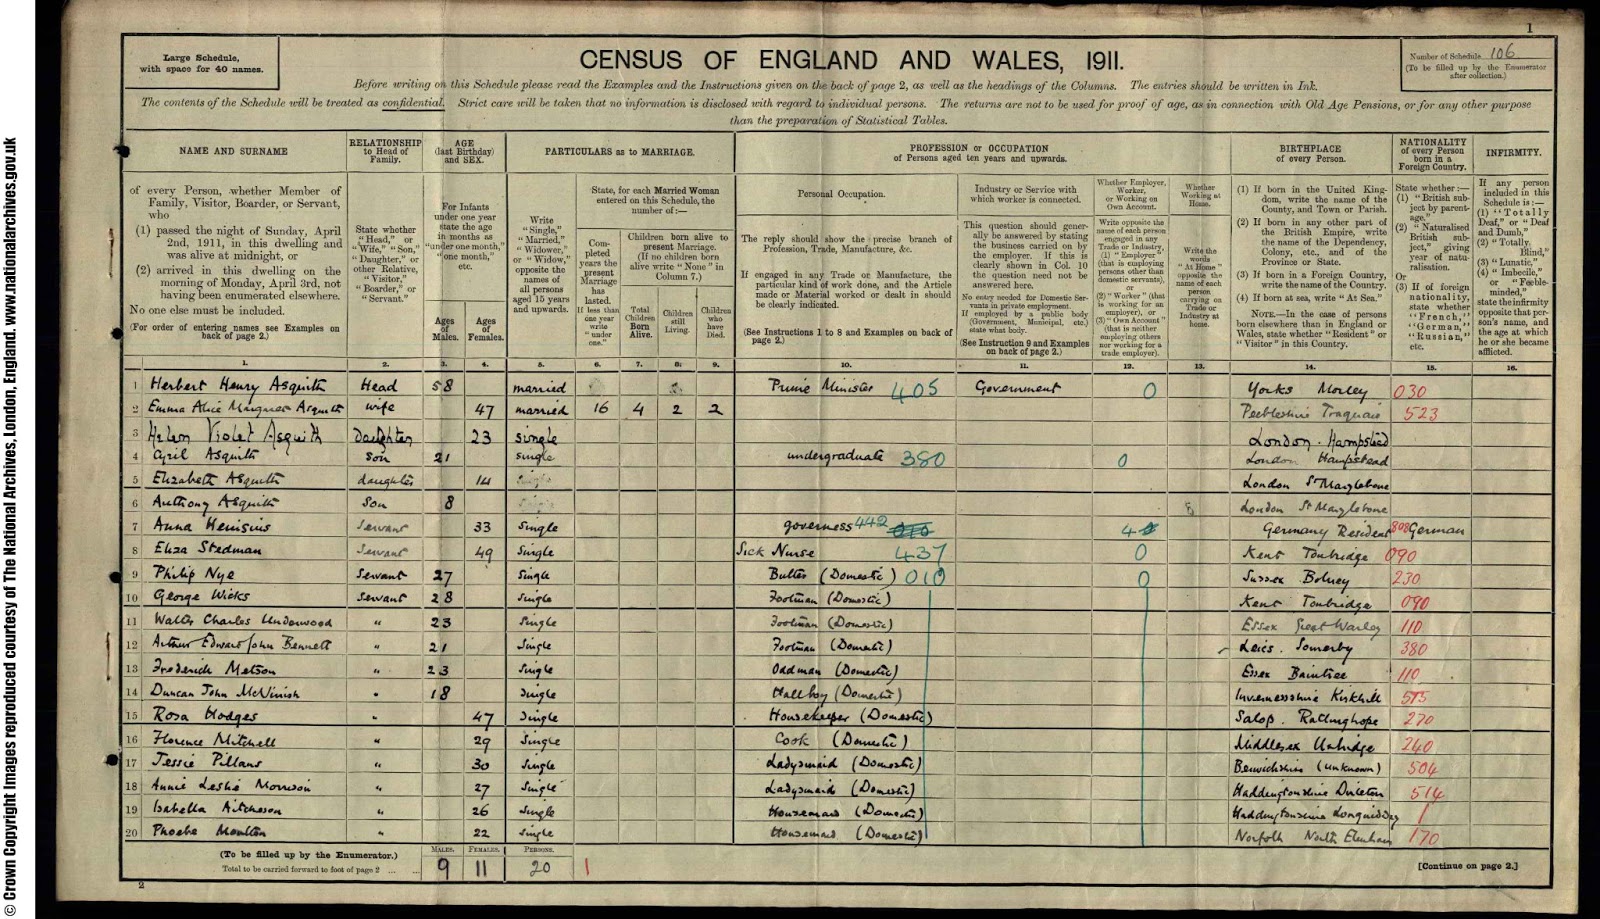 © Crown Copyright Images reproduced courtesy of The National Archives, London, England. www.nationalarchives.gov.uk
1
Large Schedule,
with space for 40 names.
CENSUS OF ENGLAND AND WALES, 1911.
Number of Schedule 106
(To be filled up by the Enumerator
after collection.)
Before writing on this Schedule please read the Examples and the Instructions given on the back of page 2, as well as the headings of the Columns. The entries should be written in Ink.
The contents of the Schedule will be treated as confidential. Strict care will be taken that no information is disclosed with regard to individual persons. The returns are not to be used for proof of age, as in connection with Old Age Pensions, or for any other purpose
than the preparation of Statistical Tables.
NAME AND SURNAME
RELATIONSHIP
to Head of
Family.
AGE
(last Birthday)
and SEX.
PARTICULARS as to MARRIAGE.
PROFESSION or OCCUPATION
of Persons aged ten years and upwards.
BIRTHPLACE
of every Person.
NATIONALITY
of every Person
born in a
Foreign Country.
INFIRMITY.
of every Person, whether Member of
Family, Visitor, Boarder, or Servant,
who
(1) passed the night of Sunday, April
2nd, 1911, in this dwelling and
was alive at midnight, or
(2) arrived in this dwelling on the
morning of Monday, April 3rd, not
having been enumerated elsewhere.
No one else must be included.
(For order of entering names see Examples on
back of page 2.)
State whether
"Head," or
"Wife," "Son,"
"Daughter," or
other Relative,
"Visitor,"
"Boarder," or
"Servant."
For Infants
under one year
state the age
in months as
"under one month,"
"one month,"
etc.
Ages
of
Males.
Ages
of
Females.
Write
"Single,"
"Married,"
"Widower,"
or "Widow,"
opposite the
names of
all persons
aged 15 years
and upwards.
State, for each Married Woman
entered on this Schedule, the
number of:—
Completed
years the
present
Marriage
has
lasted.
If less than
one year
write
"under
one."
Children born alive to
present Marriage.
(If no children born
alive write "None" in
Column 7.)
Total
Children
Born
Alive.
Children
still
Living.
Children
who
have
Died.
Personal Occupation.
The reply should show the precise branch of
Profession, Trade, Manufacture, &c.
If engaged in any Trade or Manufacture, the
particular kind of work done, and the Article
made or Material worked or dealt in should
be clearly indicated.
(See Instructions 1 to 8 and Examples on back of
page 2.)
Industry or Service with
which worker is connected.
This question should generally
be answered by stating
the business carried on by
the employer. If this is
clearly shown in Col. 10
the question need not be
answered here.
No entry needed for Domestic Servants
in private employment.
If employed by a public body
(Government, Municipal, etc.)
state what body.
(See Instruction 9 and Examples
on back of page 2.)
Whether Employer,
Worker,
or Working on
Own Account.
Write opposite the
name of each person
engaged in any
Trade or Industry,
(1) "Employer"
(that is employing
persons other than
domestic servants),
or
(2) "Worker" (that
is working for an
employer), or
(3) "Own Account"
(that is neither
employing others
nor working for a
trade employer).
Whether
Working at
Home.
Write the words
"At Home"
opposite the
name of each
person carrying on
Trade or
Industry at
home.
(1) If born in the United Kingdom,
write the name of the
County, and Town or Parish.
(2) If born in any other part of
the British Empire, write
the name of the Dependency,
Colony, etc., and of the
Province or State.
(3) If born in a Foreign Country,
write the name of the Country.
(4) If born at sea, write "At Sea."
NOTE.—In the case of persons
born elsewhere than in England or
Wales, state whether "Resident" or
"Visitor" in this Country.
State whether:—
(1) "British subject
by parentage,"
(2) "Naturalised
British subject,"
giving
year of naturalisation.
Or
(3) If of foreign
nationality,
state whether
"French,"
"German,"
"Russian,"
etc.
If any person
included in this
Schedule is:—
(1) "Totally
Deaf," or "Deaf
and Dumb,"
(2) "Totally
Blind,"
(3) "Lunatic,"
(4) "Imbecile,"
or "Feeble-minded,"
state the infirmity
opposite that person's
name, and
the age at which
he or she became
afflicted.
1. 2. 3. 4. 5. 6. 7. 8. 9. 10. 11. 12. 13. 14. 15. 16.
1 Herbert Henry Asquith Head 58 married Prime Minister 405 Government 0 Yorks Morley 030
2 Emma Alice Margaret Asquith wife 47 married 16 4 2 2 Peeblesshire Traquair 523
3 Helen Violet Asquith Daughter 23 single London. Hampstead
4 Cyril Asquith son 21 single undergraduate 380 0 London Hampstead
5 Elizabeth Asquith daughter 14 London St Marylebone
6 Anthony Asquith Son 8 London St Marylebone
7 Anna Heinsius Servant 33 single governess 442 010 4 Germany Resident 808 German
8 Eliza Stedman Servant 49 Single Sick Nurse 437 0 Kent Tonbridge 090
9 Philip Nye Servant 27 Single Butler (Domestic) 010 0 Sussex Bolney 230
10 George Wicks Servant 28 Single Footman (Domestic) Kent Tonbridge 090
11 Walter Charles Underwood " 23 Single Footman (Domestic) Essex Great Warley 110
12 Arthur Edward John Bennett " 21 Single Footman (Domestic) Leics. Somerby 380
13 Frederick Metson " 23 Single Oddman (Domestic) Essex Baintree 110
14 Duncan John McVinish " 18 Single Hallboy (Domestic) Invernessshire Kirkhill 515
15 Rosa Hodges " 47 Single Housekeeper (Domestic) Salop. Ratlinghope 270
16 Florence Mitchell " 29 Single Cook (Domestic) Middlesex Uxbridge 240
17 Jessie Pillans " 30 Single Ladysmaid (Domestic) Berwickshire (unknown) 504
18 Annie Leslie Morrison " 27 Single Ladysmaid (Domestic) Haddingtonshire Dirleton 514
19 Isabella Aitcheson " 26 Single Housemaid (Domestic) Haddingtonshire Longniddry
20 Phoebe Moulton " 22 Single Housemaid (Domestic) Norfolk North Elmham 170
(To be filled up by the Enumerator.)
Total to be carried forward to foot of page 2 ... ...
MALES. FEMALES. PERSONS.
9 11 20 1
[Continue on page 2.]
2